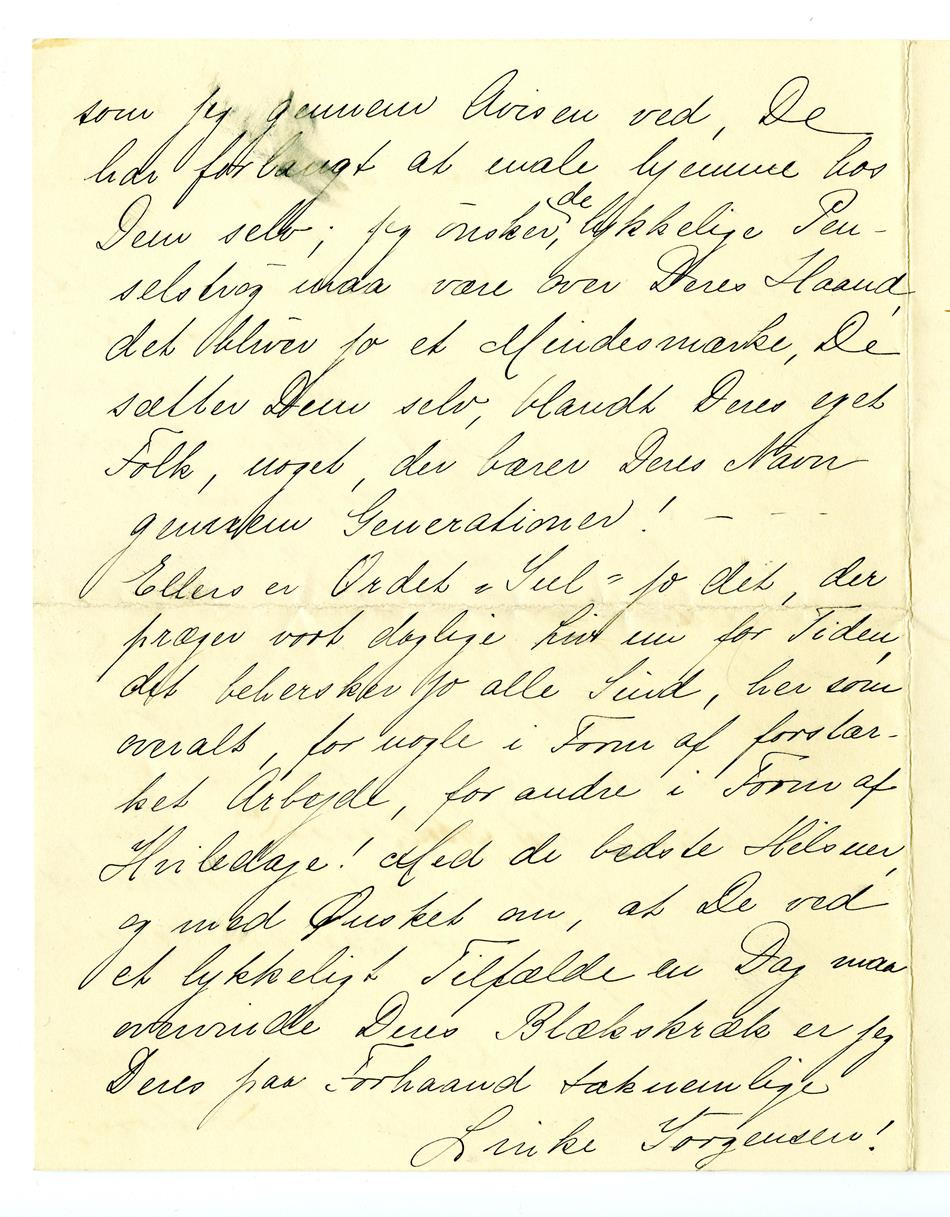 som jeg gennem Avisen ved, De
har forlangt at male hjemme hos
Dem selv; jeg ønsker, de lykkelige Pen-
selstrøg maa være over Deres Haand,
det bliver jo et Mindesmærke, De
sætter Dem selv, blandt Deres eget
Folk, noget, der bærer Deres Navn
gennem Generationer! - - -
Ellers er Ordet „Jul" jo det, der
præger vort daglige Liv nu for Tiden,
det behersker jo alle Sind, her som
overalt, for nogle i Form af forstær-
ket Arbejde, for andre i Form af
Hviledage! Med de bedste Hilsner,
og med Ønsket om, at De ved
et lykkeligt Tilfælde en Dag maa
overvinde Deres Blækskræk er jeg
Deres paa Forhaand taknemlige
Jørgensen!